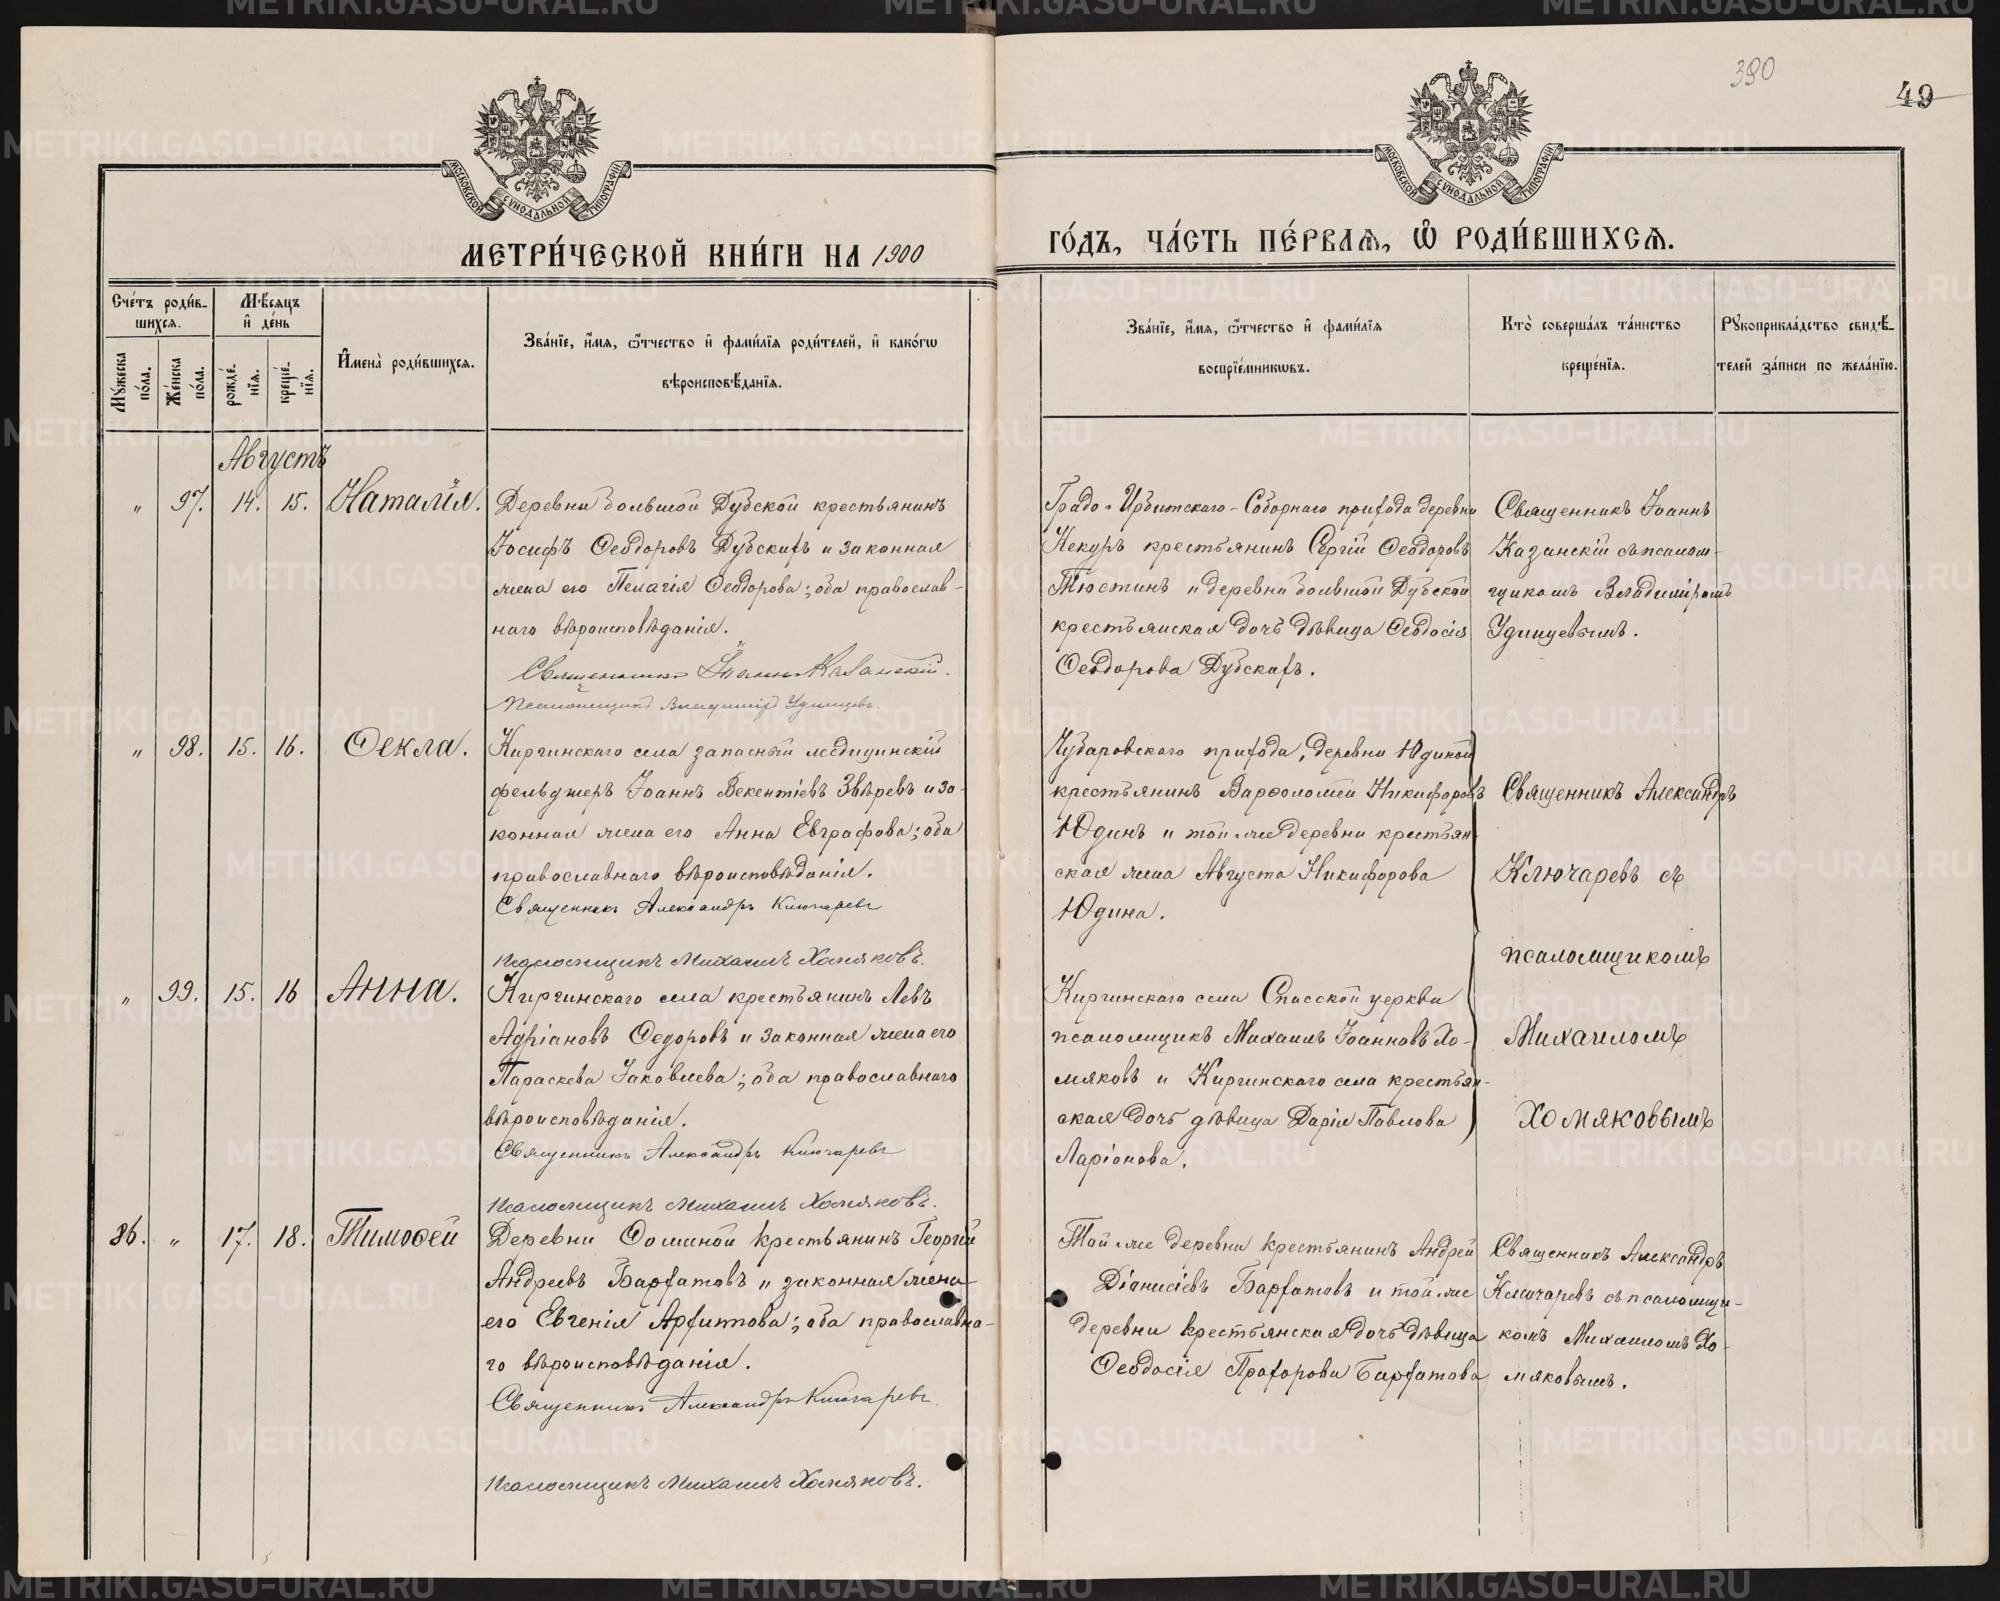 390
49
МОСКОВСКОЙ СѴНОДАЛЬНОЙ ТИПОГРАФІИ
МОСКОВСКОЙ СѴНОДАЛЬНОЙ ТИПОГРАФІИ
МЕТРИ́ЧЕСКОЙ КНИ́ГИ НА 1900
ГО́ДЪ, ЧА́СТЬ ПЕ́РВАѦ, Ѽ РОДИ́ВШИХСѦ.
Сче́тъ роди́в-
шихсѧ.
Мꙋ́жеска по́ла.
Же́нска по́ла.
Мѣ́сѧцъ
и҆ де́нь
рожде́-
нїѧ.
креще́-
нїѧ.
И҆мена̀ роди́вшихсѧ.
Зва́нїе, и҆́мѧ, ѻ҆́тчество и҆ фами́лїѧ роди́телей, и҆ како́гѡ
вѣроисповѣ́данїѧ.
Зва́нїе, и҆́мѧ, ѻ҆́тчество и҆ фами́лїѧ
воспрїе́мникѡвъ.
Кто̀ соверша́лъ та́инство
креще́нїѧ.
Рꙋкоприкла́дство свидѣ́-
телей за́писи по жела́нїю.
Августъ
„ 97. 14. 15. Наталія.
Деревни Большой Дубской крестьянинъ
Іосифъ Ѳеодоровъ Дубскихъ и законная
жена его Пелагія Ѳеодорова; оба православ-
наго вѣроисповѣданія.
Священникъ Іоаннъ Казанскій.
Псаломщикъ Владиміръ Удинцевъ.
Градо-Ирбитскаго-Соборнаго прихода деревни
Кекуръ крестьянинъ Сергій Ѳеодоровъ
Тюстинъ и деревни Большой Дубской
крестьянская дочь дѣвица Ѳеодосія
Ѳеодорова Дубскихъ.
Священникъ Іоаннъ
Казанскій съ псалом-
щикомъ Владиміромъ
Удинцевымъ.
„ 98. 15. 16. Ѳекла.
Киргинскаго села запасный медицинскій
фельдшеръ Іоаннъ Векентіевъ Звѣревъ и за-
конная жена его Анна Евграфова; оба
православнаго вѣроисповѣданія.
Священникъ Александръ Ключаревъ
Псаломщикъ Михаилъ Хомяковъ.
Чубаровскаго прихода, деревни Юдиной
крестьянинъ Варѳоломей Никифоровъ
Юдинъ и той-же деревни крестьян-
ская жена Августа Никифорова
Юдина.
Священникъ Александръ
Ключаревъ съ
псаломщикомъ
Михаиломъ
Хомяковымъ
„ 99. 15. 16 Анна.
Киргинскаго села крестьянинъ Левъ
Адріановъ Ѳедоровъ и законная жена его
Параскева Іаковлева; оба православнаго
вѣроисповѣданія.
Священникъ Александръ Ключаревъ
Псаломщикъ Михаилъ Хомяковъ.
Киргинскаго села Спасской церкви
псаломщикъ Михаилъ Іоанновъ Хо-
мяковъ и Киргинскаго села крестьян-
ская дочь дѣвица Дарія Павлова
Ларіонова.
86. „ 17. 18. Тимоѳей
Деревни Ѳоминой крестьянинъ Георгій
Андреевъ Бархатовъ и законная жена
его Евгенія Архипова; оба православна-
го вѣроисповѣданія.
Священникъ Александръ Ключаревъ
Псаломщикъ Михаилъ Хомяковъ.
Той-же деревни крестьянинъ Андрей
Діанисіевъ Бархатовъ и той-же
деревни крестьянская дочь дѣвица
Ѳеодосія Прохорова Бархатова
Священникъ Александръ
Ключаревъ съ псаломщи-
комъ Михаиломъ Хо-
мяковымъ.